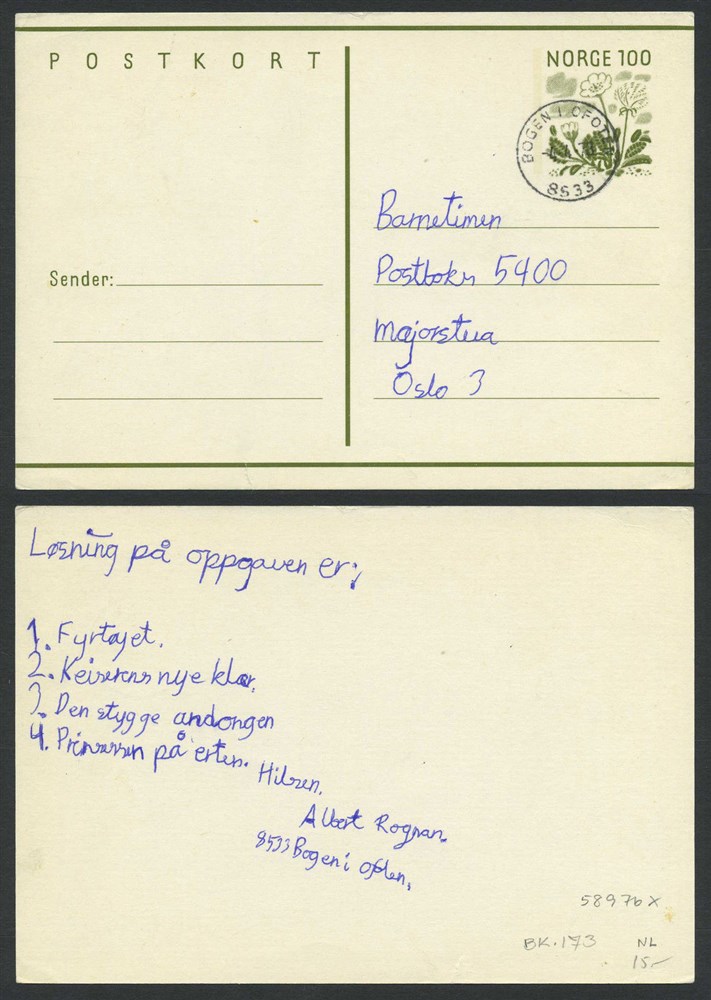 POSTKORT
NORGE 100
BOGEN I OFOTEN
8533
Barnetimen
Postboks 5400
Majorstua
Oslo 3
Sender:
Løsning på oppgaven er;
1. Fyrtøyet.
2. Keiserens nye klær.
3. Den stygge andongen
4. Prinsessen på erten.
Hilsen,
Albert Rognan.
8533 Bogen i Ofoten,
58976 X
BK.173 NL
15.-